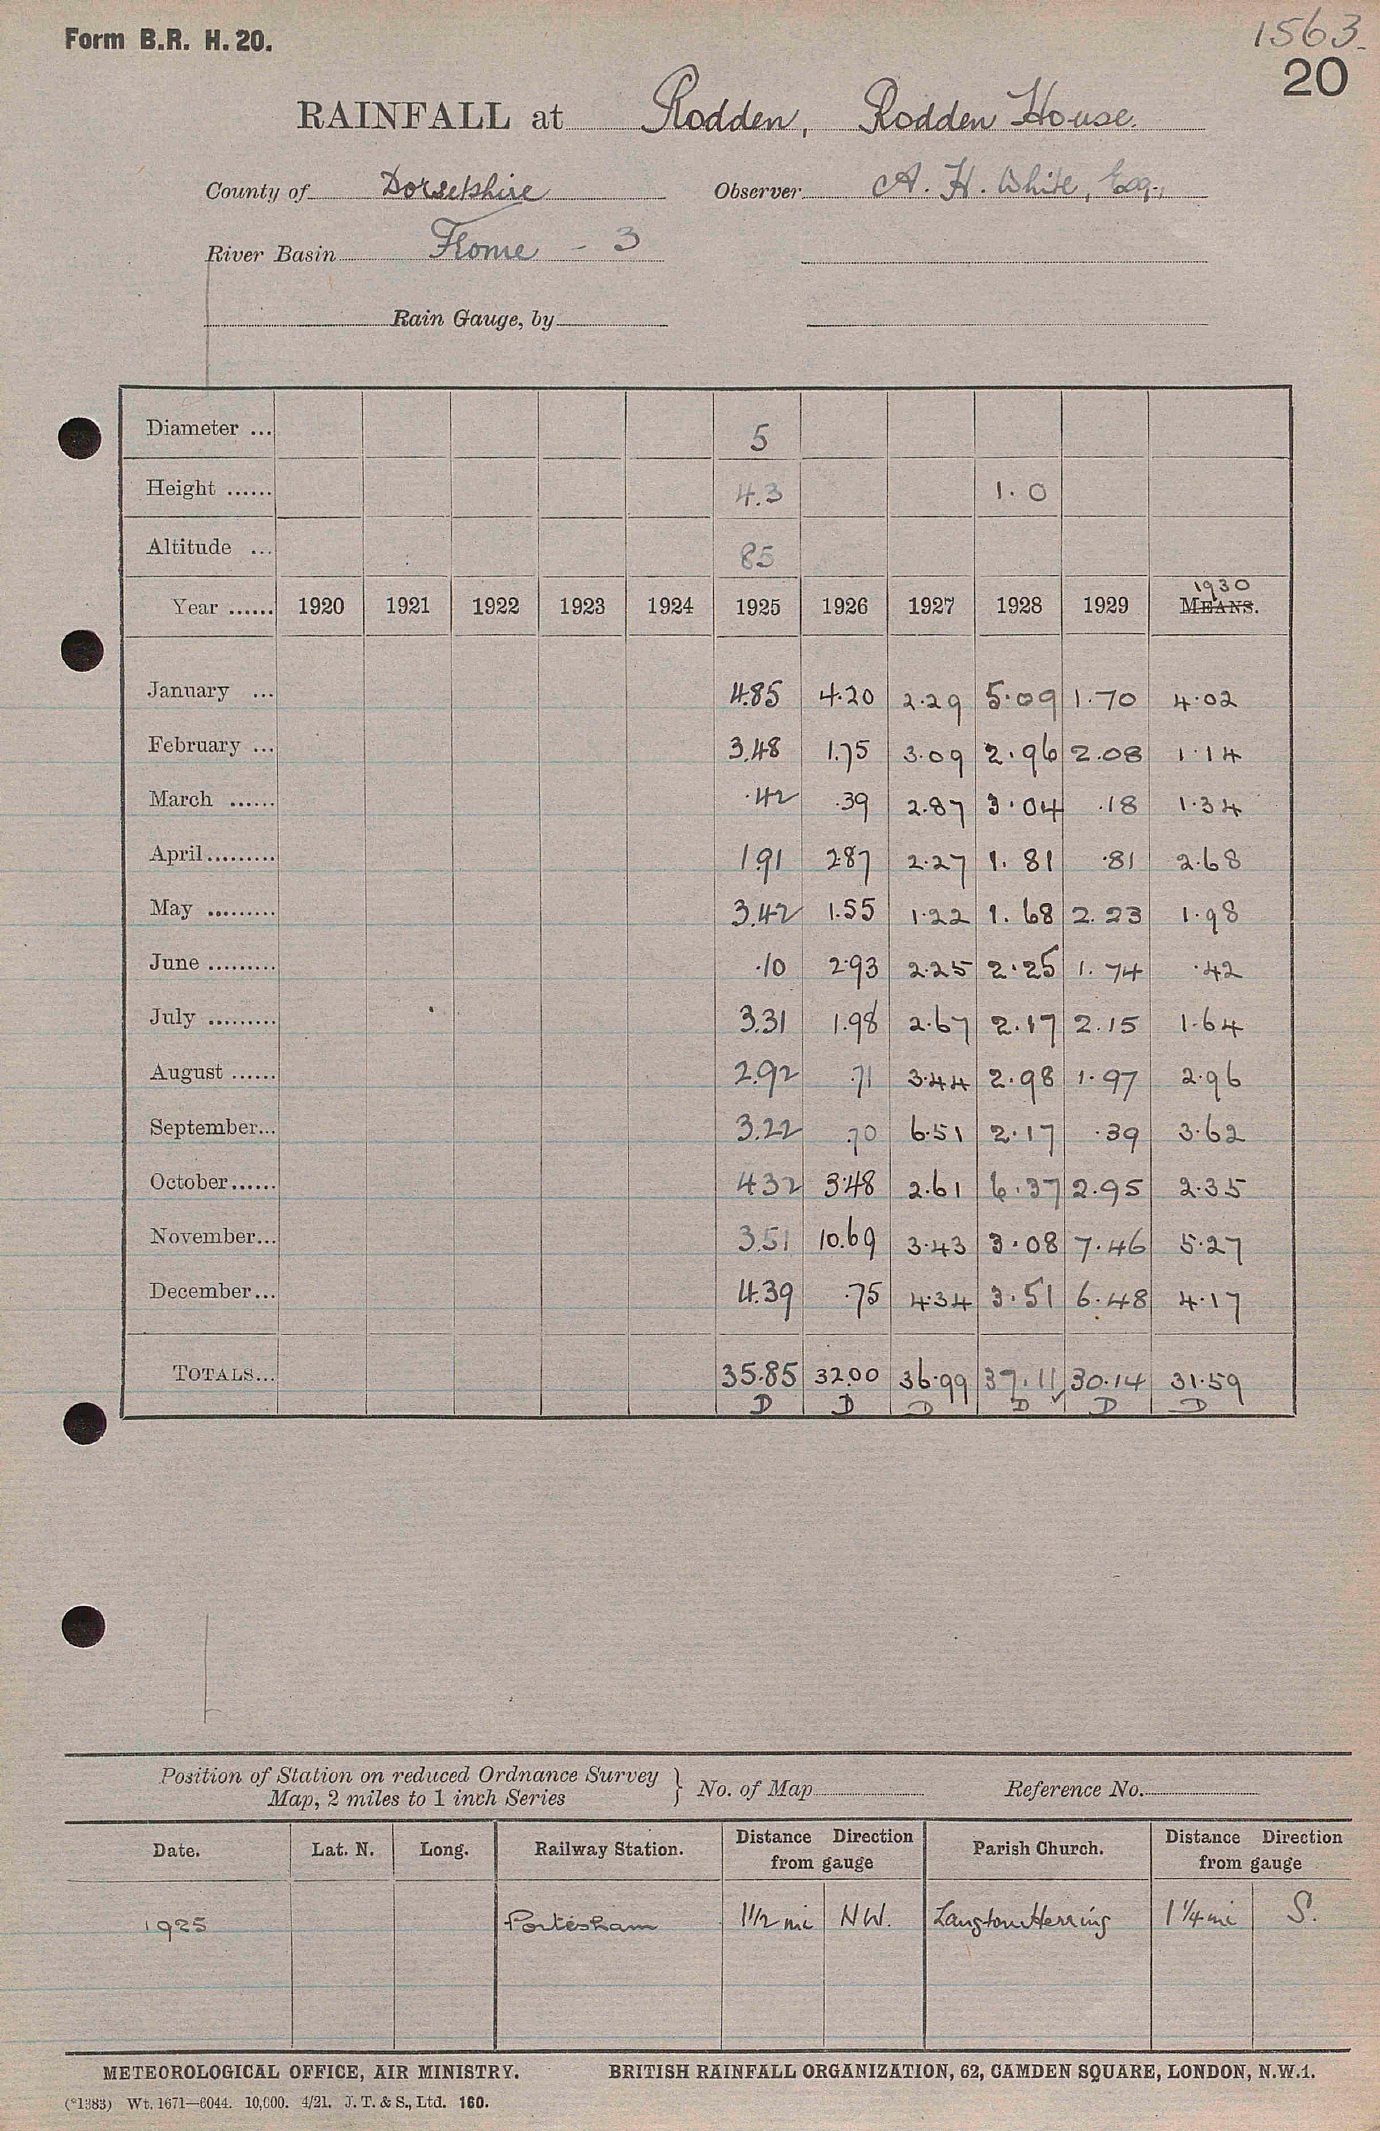 Form B.R. H. 20.
1563.
20
RAINFALL at Rodden, Rodden House.
County of Dorsetshire Observer A. H. White, Esq.,
River Basin Frome - 3
Rain Gauge, by
Diameter ... 5
Height ...... 4.3 1.0
Altitude ... 85
1930
Year ...... 1920 1921 1922 1923 1924 1925 1926 1927 1928 1929 MEANS.
January ... 4.85 4.20 2.29 5.09 1.70 4.02
February ... 3.48 1.75 3.09 2.96 2.08 1.14
March ...... .42 .39 2.87 3.04 .18 1.34
April......... 1.91 2.87 2.27 1.81 .81 2.68
May ......... 3.42 1.55 1.22 1.68 2.23 1.98
June ......... .10 2.93 2.25 2.25 1.74 .42
July ......... 3.31 1.98 2.67 2.17 2.15 1.64
August ...... 2.92 .71 3.44 2.98 1.97 2.96
September... 3.22 .70 6.51 2.17 .39 3.62
October...... 4.32 3.48 2.61 6.37 2.95 2.35
November... 3.51 10.69 3.43 3.08 7.46 5.27
December... 4.39 .75 4.34 3.51 6.48 4.17
TOTALS... 35.85 32.00 36.99 37.11 30.14 31.59
D D D D D D
Position of Station on reduced Ordnance Survey
Map, 2 miles to 1 inch Series } No. of Map Reference No.
Date. Lat. N. Long. Railway Station. Distance Direction from gauge Parish Church. Distance Direction from gauge
1925 Portesham 1 1/2 mi NW. Langton Herring 1 1/4 mi S.
METEOROLOGICAL OFFICE, AIR MINISTRY. BRITISH RAINFALL ORGANIZATION, 62, CAMDEN SQUARE, LONDON, N.W.1.
(*1383) Wt. 1671—6044. 10,000. 4/21. J. T. & S., Ltd. 160.